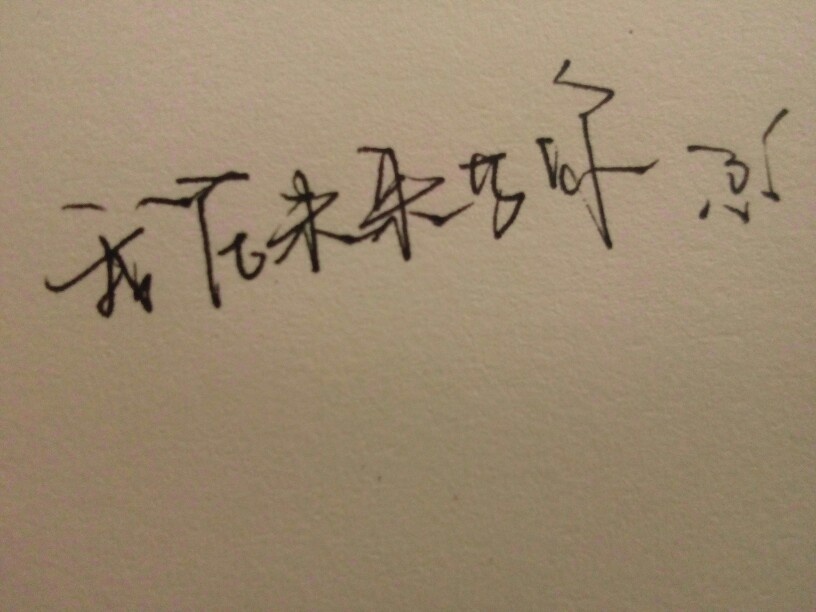 我在未来等你